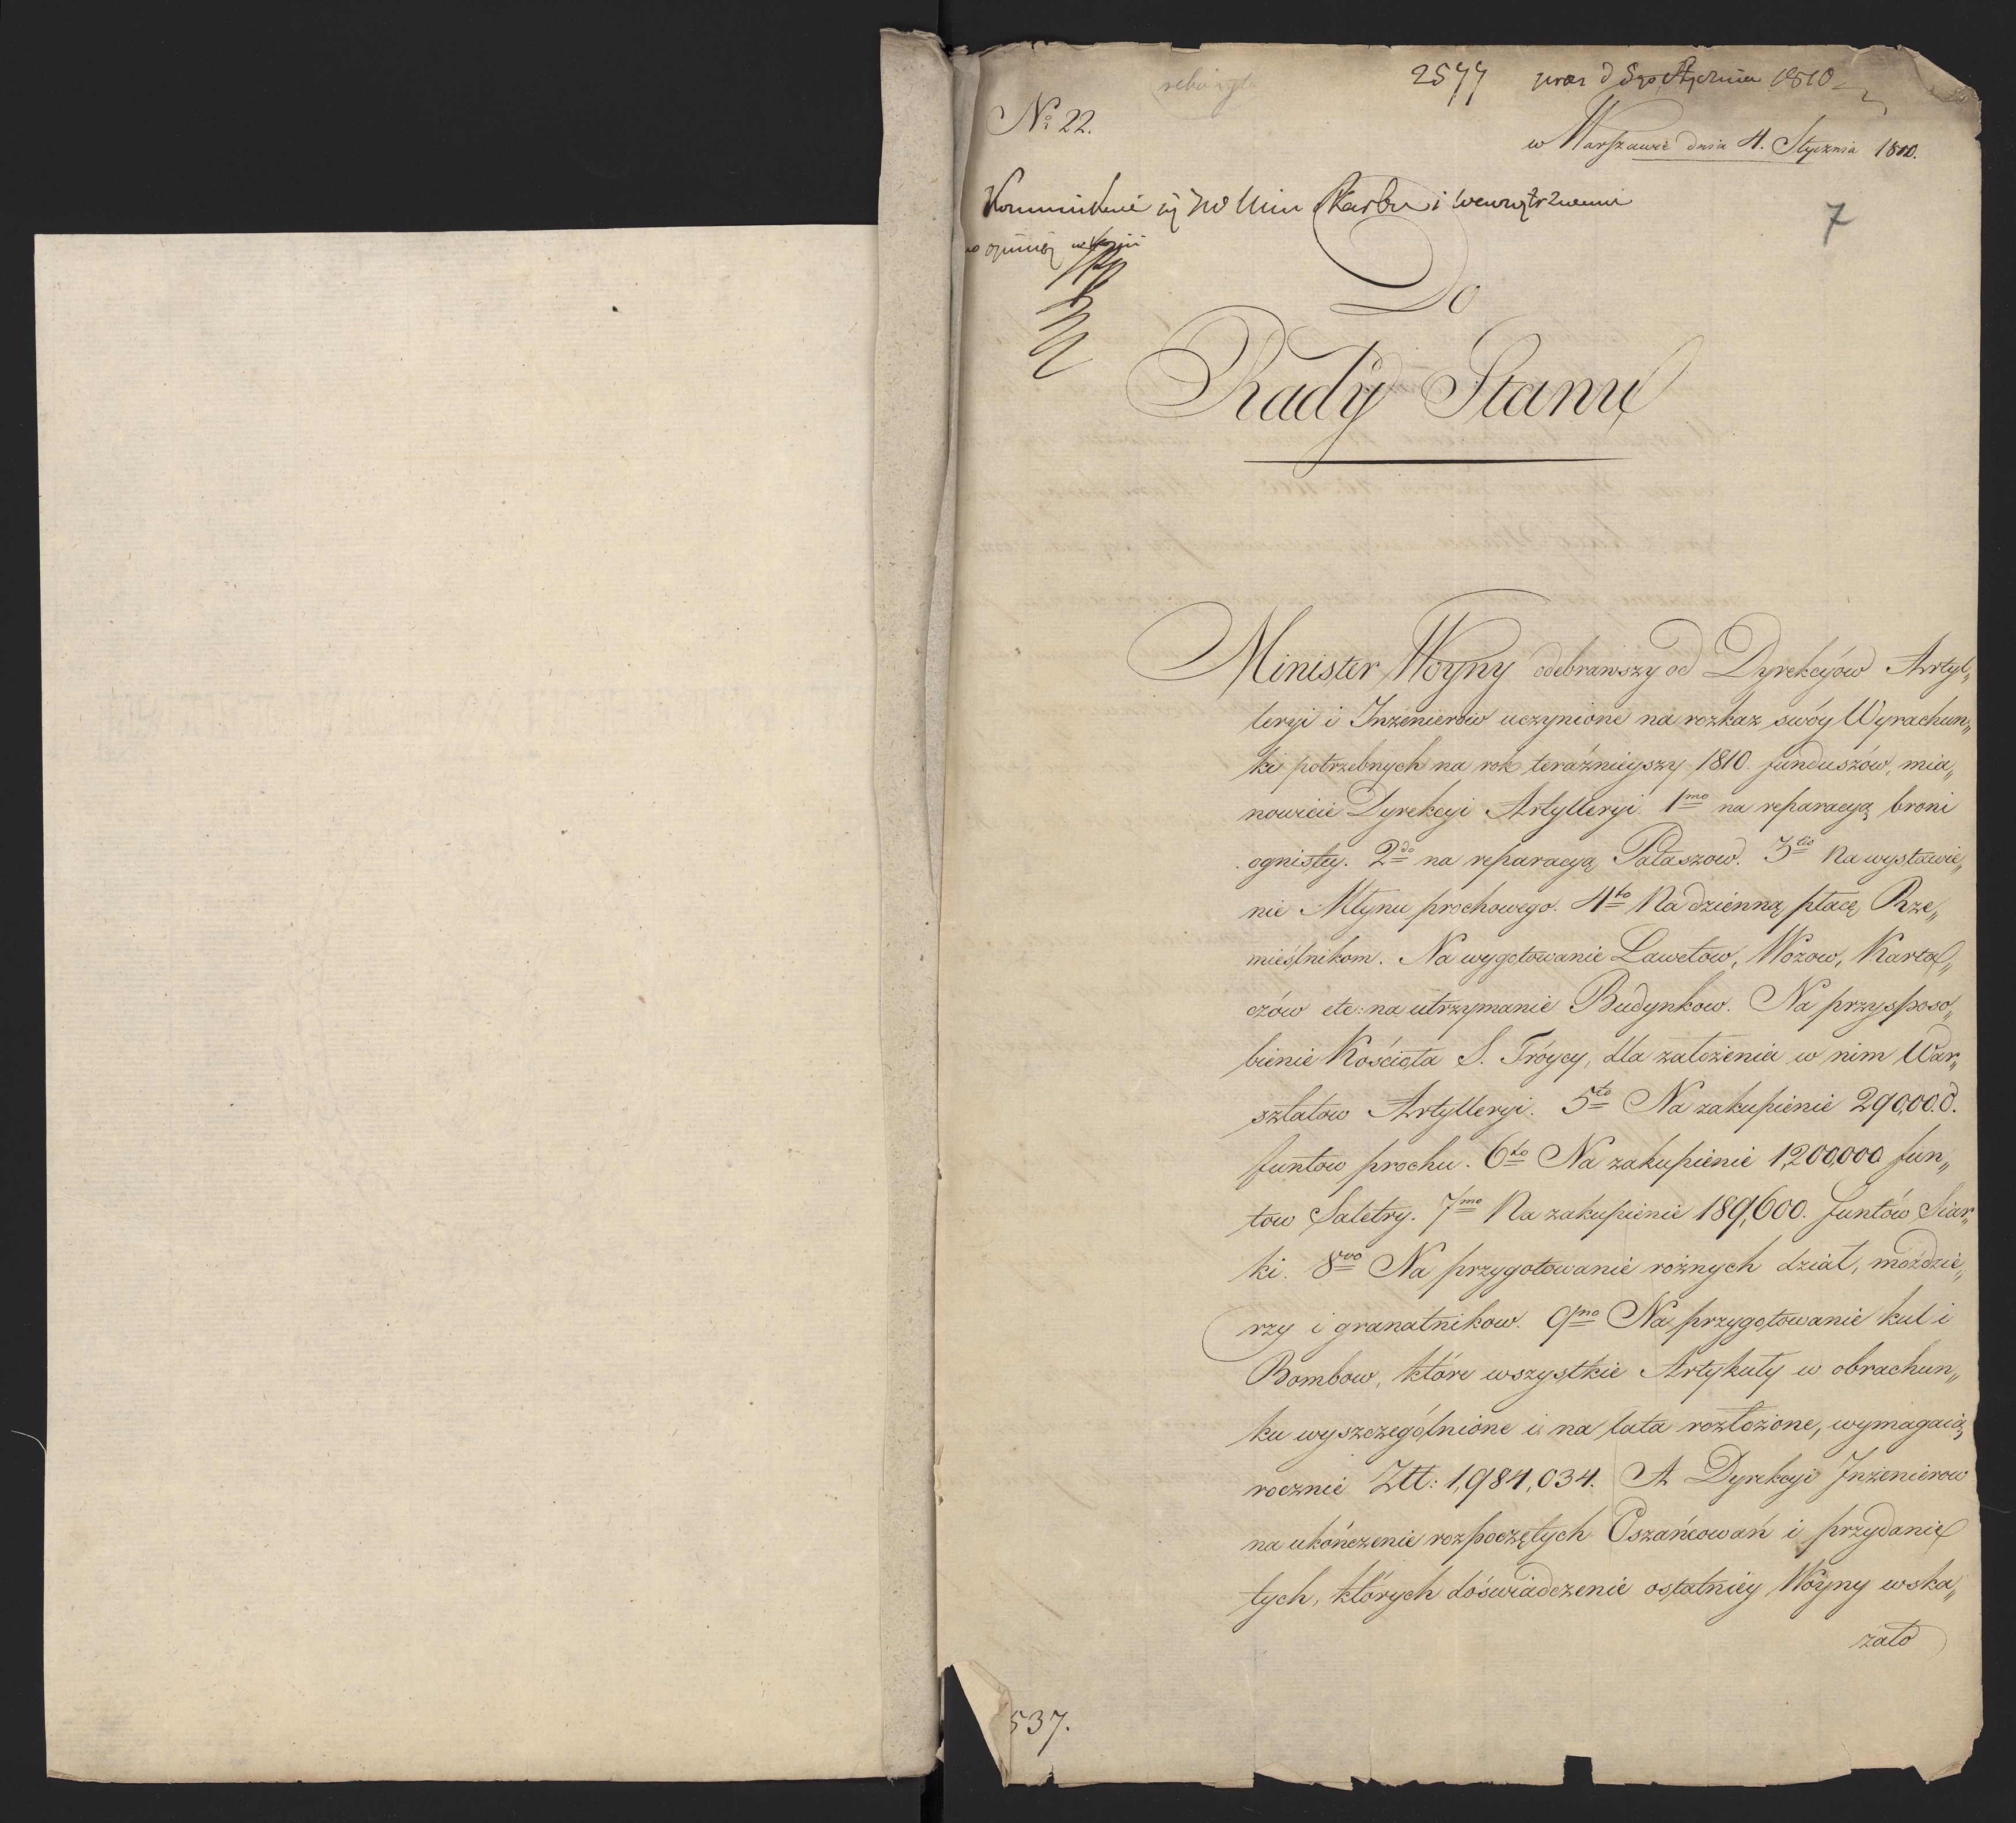 2577 praes d 5go Stycznia 1810
No 22.
w Warszawie dnia 4. Stycznia 1810.
Kommunikuie się JW Min Skarbu i Wewnętrznemu
7
opinię
Do
Rady Stanu
Minister Woyny odebrawszy od Dyrekcyów Artyl„
leryi i Inżenierów uczynione na rozkaz swóy Wyrachun„
ki potrzebnych na rok teraźnieyszy 1810. funduszów, mia„
nowicie Dyrekcyi Artylleryi. 1mo na reparacyą broni
ognistey. 2do na reparacyą Pałaszow. 3tio Na wystawie„
nie Młynu prochowego. 4to Na dzienną płacę Rze„
mieślnikom. Na wygotowanie Lawetow, Wozow, Karta„
czów etc: na utrzymanie Budynkow. Na przysposo„
bienie Kościoła S. Tróycy, dla założenia w nim War„
sztatow Artylleryi. 5to Na zakupienie 290,00.0.
funtow prochu. 6to Na zakupienie 1,200,000 fun„
tow Saletry. 7mo Na zakupienie 189,600. funtów Siar„
ki. 8vo Na przygotowanie rożnych dział, moździe„
rzy i granatnikow. 9no Na przygotowanie kul i
Bombow, które wszystkie Artykuły w obrachun„
ku wyszczególnione i na lata rozłożone, wymagaią
rocznie Ztt: 1,984,034. A Dyrekcyi Inżenierow
na ukończenie rozpoczętych Oszańcowań i przydanie
tych, których doświadczenie ostatniey Woyny wska„
zało
537.